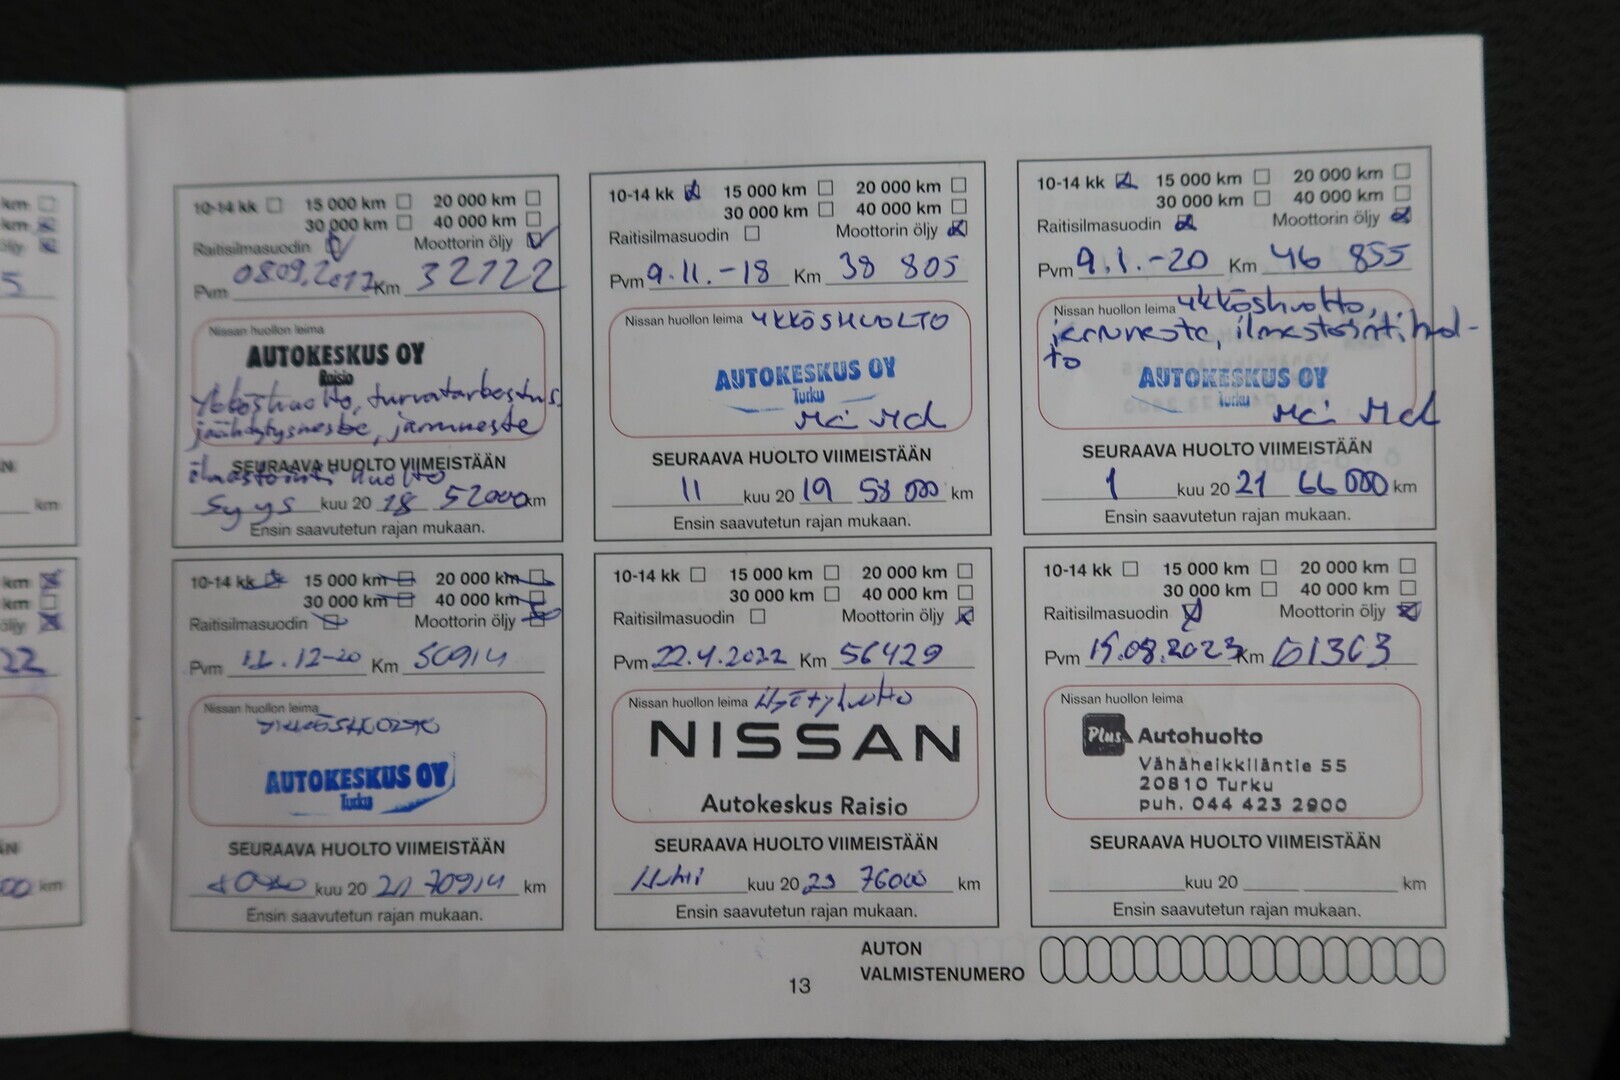 km
km
öljy
5
N
km
km
km
öljy
22
ÄN
00 km
10-14 kk 15 000 km 20 000 km
30 000 km 40 000 km
Raitisilmasuodin Moottorin öljy
Pvm 08.09.2017 Km 32122
Nissan huollon leima
AUTOKESKUS OY
Raisio
Ykköshuolto, turvatarkastus,
jäähdytysneste, jarruneste
ilmastointi huolto
SEURAAVA HUOLTO VIIMEISTÄÄN
Syys kuu 20 18 52000 km
Ensin saavutetun rajan mukaan.
10-14 kk 15 000 km 20 000 km
30 000 km 40 000 km
Raitisilmasuodin Moottorin öljy
Pvm 9.11.-18 Km 38 805
Nissan huollon leima YKKÖSHUOLTO
AUTOKESKUS OY
Turku
SEURAAVA HUOLTO VIIMEISTÄÄN
11 kuu 20 19 58 000 km
Ensin saavutetun rajan mukaan.
10-14 kk 15 000 km 20 000 km
30 000 km 40 000 km
Raitisilmasuodin Moottorin öljy
Pvm 9.1.-20 Km 46 855
Nissan huollon leima ykköshuolto,
jarruneste, ilmastointihuol-
to
AUTOKESKUS OY
Turku
SEURAAVA HUOLTO VIIMEISTÄÄN
1 kuu 20 21 66 000 km
Ensin saavutetun rajan mukaan.
10-14 kk 15 000 km 20 000 km
30 000 km 40 000 km
Raitisilmasuodin Moottorin öljy
Pvm 11.12-20 Km 50914
Nissan huollon leima
YKKÖSHUOLTO
AUTOKESKUS OY
Turku
SEURAAVA HUOLTO VIIMEISTÄÄN
kuu 20 21 70914 km
Ensin saavutetun rajan mukaan.
10-14 kk 15 000 km 20 000 km
30 000 km 40 000 km
Raitisilmasuodin Moottorin öljy
Pvm 22.4.2022 Km 56429
Nissan huollon leima Hyötyhuolto
NISSAN
Autokeskus Raisio
SEURAAVA HUOLTO VIIMEISTÄÄN
Huhti kuu 20 23 76000 km
Ensin saavutetun rajan mukaan.
10-14 kk 15 000 km 20 000 km
30 000 km 40 000 km
Raitisilmasuodin Moottorin öljy
Pvm 15.08.2023 Km 61363
Nissan huollon leima
Plus Autohuolto
Vähäheikkiläntie 55
20810 Turku
puh. 044 423 2900
SEURAAVA HUOLTO VIIMEISTÄÄN
kuu 20 km
Ensin saavutetun rajan mukaan.
AUTON
VALMISTENUMERO
13